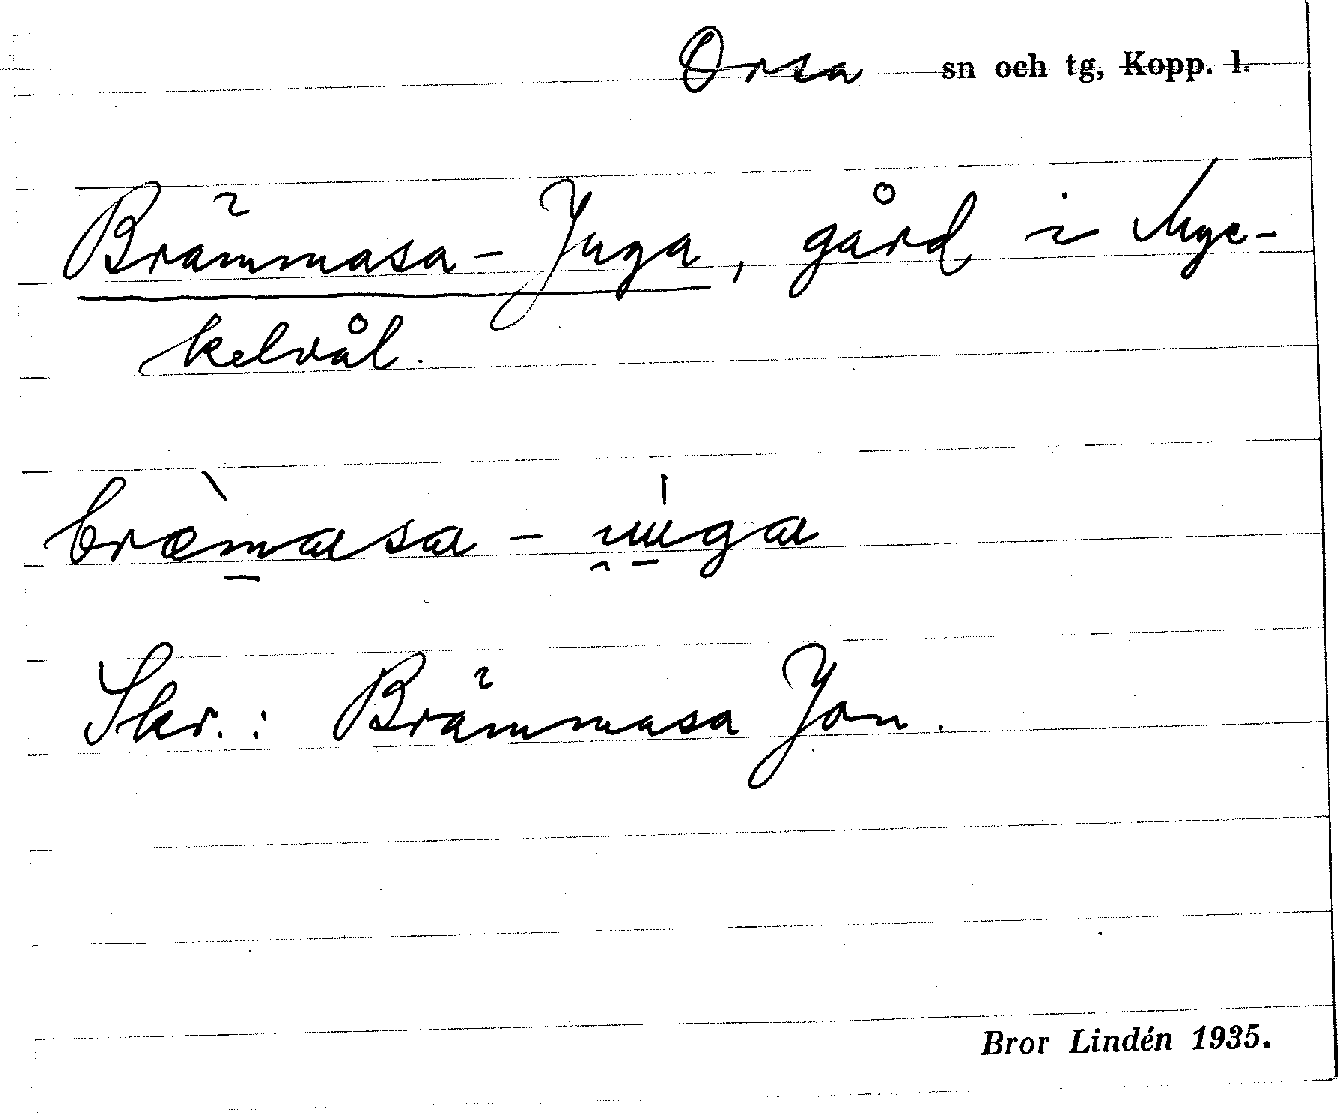 Orsa sn och tg, Kopp. l.
Brämmasa-Juga, gård i Myc-
kelvål.
bræ̀m̱asa - i̯úga
Skr.: Brämmasa Jon.
Bror Lindén 1935.